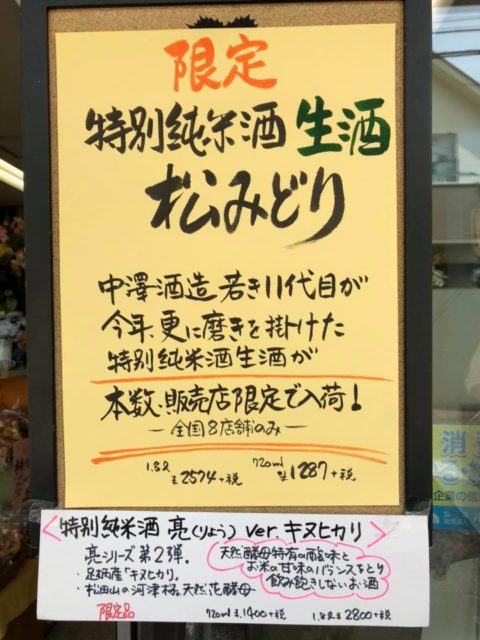 限定
特別純米酒 生酒
松みどり
中澤酒造 若き11代目が
今年、更に磨きを掛けた
特別純米酒生酒が
本数・販売店限定で入荷!
ー全国8店舗のみー
1.8ℓ ¥2574+税 720ml ¥1287+税
<特別純米酒 亮(りょう) ver.キヌヒカリ>
亮シリーズ第2弾。
・足柄産「キヌヒカリ」
・松田山の河津桜、天然花酵母
天然酵母特有の酸味と
お米の甘味のバランスをとり
飲み飽きしないお酒
限定品 720ml ¥1400+税 1.8ℓ ¥2800+税
消
企業の